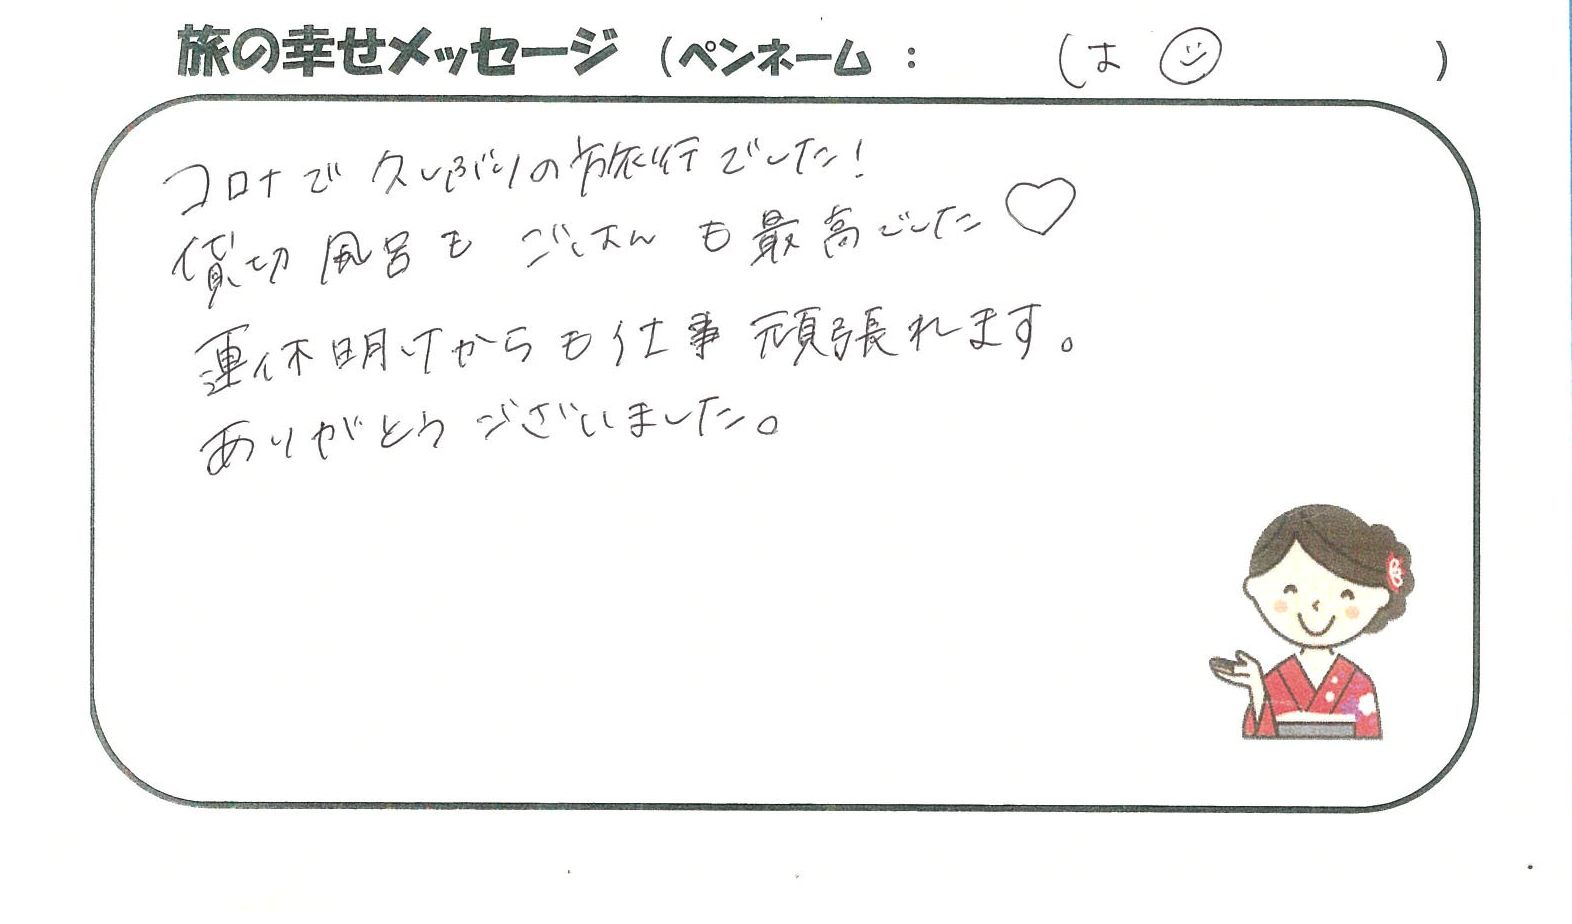 旅の幸せメッセージ (ペンネーム : は☺ )
コロナで久しぶりの旅行でした!
貸切風呂もごはんも最高でした♡
連休明けからも仕事頑張れます。
ありがとうございました。